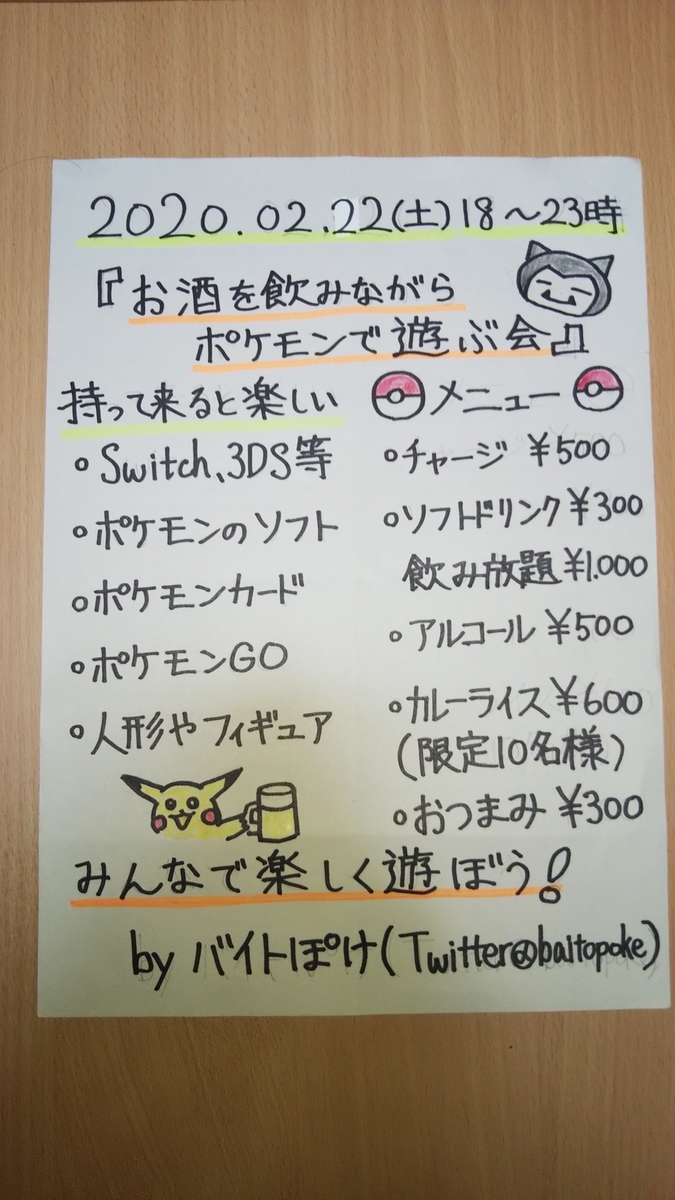 2020.02.22(土)18～23時
『お酒を飲みながら
ポケモンで遊ぶ会』
持って来ると楽しい
・Switch、3DS等
・ポケモンのソフト
・ポケモンカード
・ポケモンGO
・人形やフィギュア
メニュー
・チャージ ¥500
・ソフトドリンク¥300
飲み放題¥1.000
・アルコール ¥500
・カレーライス¥600
(限定10名様)
・おつまみ ¥300
みんなで楽しく遊ぼう!
by バイトぽけ(Twitter@baitopoke)